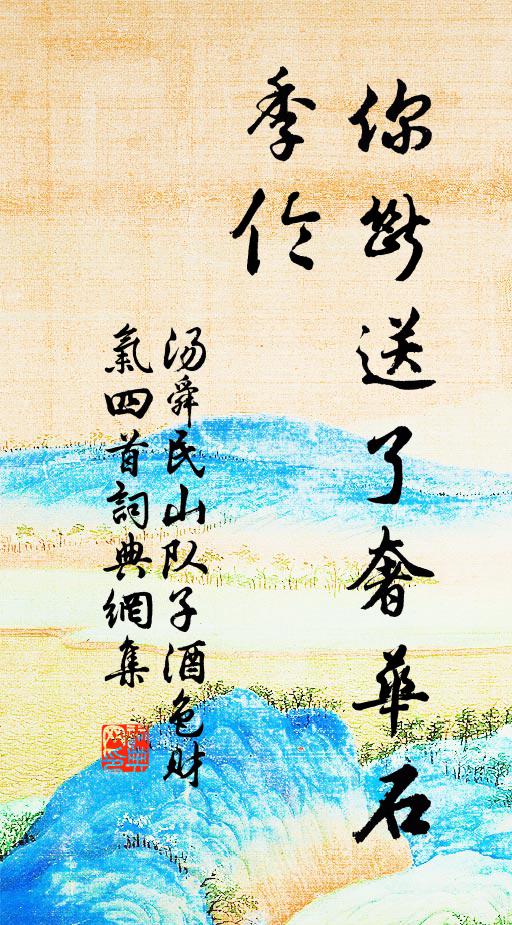 你斷送了奢華石
季伦
汤舜民山队子酒色财
氣四首詞典網集